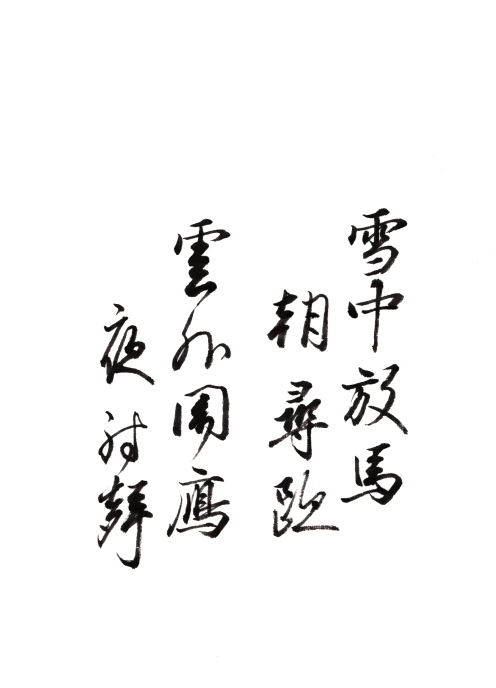 雪中放馬
朝尋跡
雲外聞
夜射聲